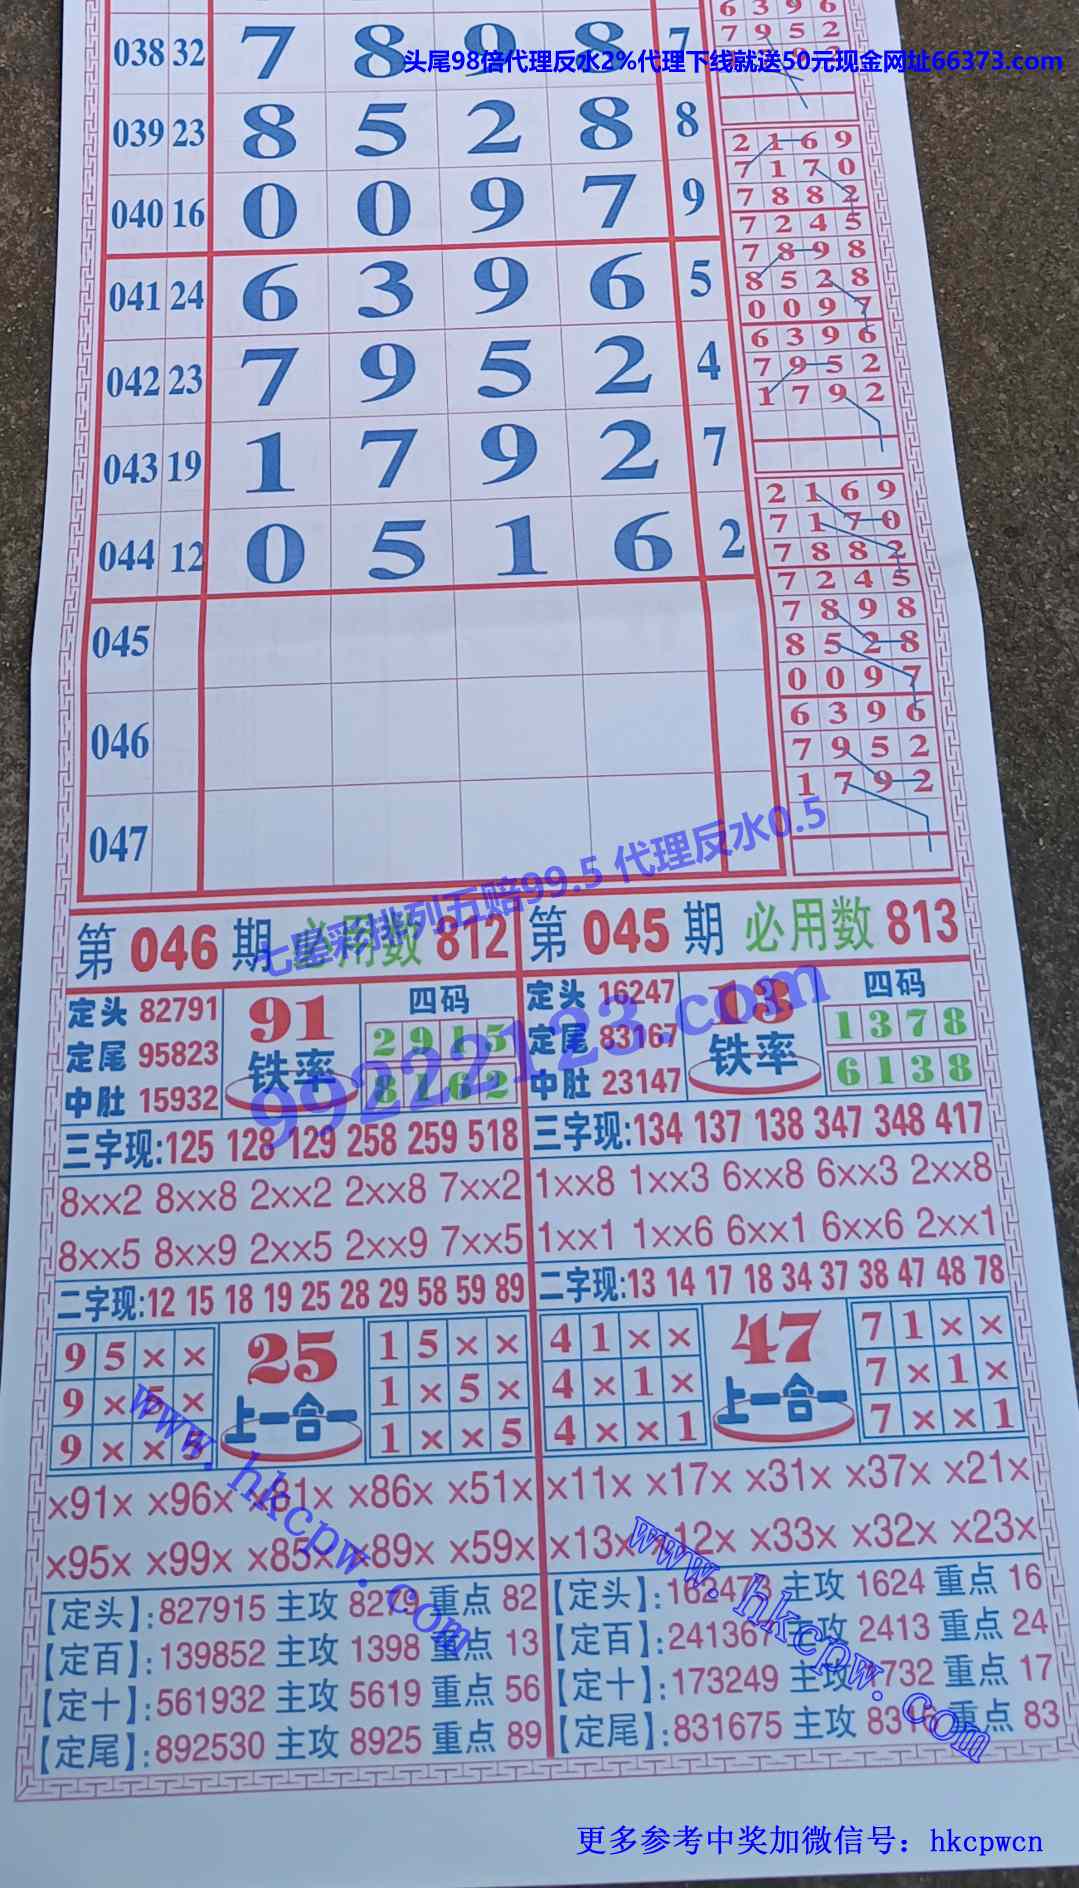 6 3 9 6
038 32 7 8 9 8 7
7 9 5 2
头尾98倍代理反水2%代理下线就送50元现金网址66373.com
039 23 8 5 2 8 8
040 16 0 0 9 7 9
041 24 6 3 9 6 5
042 23 7 9 5 2 4
043 19 1 7 9 2 7
044 12 0 5 1 6 2
045
046
047
2 1 6 9
7 1 7 0
7 8 8 2
7 2 4 5
7 8 9 8
8 5 2 8
0 0 9 7
6 3 9 6
7 9 5 2
1 7 9 2
2 1 6 9
7 1 7 0
7 8 8 2
7 2 4 5
7 8 9 8
8 5 2 8
0 0 9 7
6 3 9 6
7 9 5 2
1 7 9 2
七星彩排列五赔99.5 代理反水0.5
99222123.com
第046期 必用数 812
定头 82791
定尾 95823
中肚 15932
91
铁率
四码
2 9 1 5
8 1 6 2
三字现:125 128 129 258 259 518
8××2 8××8 2××2 2××8 7××2
8××5 8××9 2××5 2××9 7××5
二字现:12 15 18 19 25 28 29 58 59 89
9 5 × ×
9 × 5 ×
9 × × 5
25
上一合一
1 5 × ×
1 × 5 ×
1 × × 5
×91× ×96× ×81× ×86× ×51×
×95× ×99× ×85× ×89× ×59×
【定头】:827915 主攻 8279 重点 82
【定百】:139852 主攻 1398 重点 13
【定十】:561932 主攻 5619 重点 56
【定尾】:892530 主攻 8925 重点 89
第045期 必用数 813
定头 16247
定尾 83167
中肚 23147
13
铁率
四码
1 3 7 8
6 1 3 8
三字现:134 137 138 347 348 417
1××8 1××3 6××8 6××3 2××8
1××1 1××6 6××1 6××6 2××1
二字现:13 14 17 18 34 37 38 47 48 78
4 1 × ×
4 × 1 ×
4 × × 1
47
上一合一
7 1 × ×
7 × 1 ×
7 × × 1
×11× ×17× ×31× ×37× ×21×
×13× ×12× ×33× ×32× ×23×
【定头】:162473 主攻 1624 重点 16
【定百】:241367 主攻 2413 重点 24
【定十】:173249 主攻 1732 重点 17
【定尾】:831675 主攻 8316 重点 83
www.hkcpw.com
www.hkcpw.com
更多参考中奖加微信号：hkcpwcn